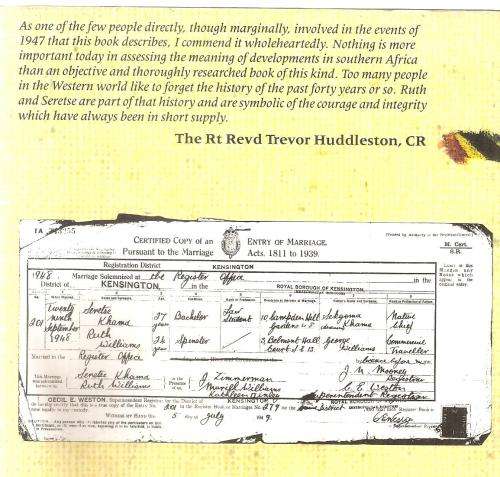 As one of the few people directly, though marginally, involved in the events of
1947 that this book describes, I commend it wholeheartedly. Nothing is more
important today in assessing the meaning of developments in southern Africa
than an objective and thoroughly researched book of this kind. Too many people
in the Western world like to forget the history of the past forty years or so. Ruth
and Seretse are part of that history and are symbolic of the courage and integrity
which have always been in short supply.
The Rt Revd Trevor Huddleston, CR
CERTIFIED COPY of an ENTRY OF MARRIAGE.
Pursuant to the Marriage Acts. 1811 to 1939.
M. Cert.
S.R.
Registration District KENSINGTON
1948. Marriage Solemnized at the Register Office in the
District of KENSINGTON in the ROYAL BOROUGH OF KENSINGTON
201 Twenty ninth September 1948 Seretse Khama 27 years Bachelor Law Student 10 Campden Hill Gardens W 8 Sekgoma Khama Native Chief
Ruth Williams 24 years Spinster 5 Belmont Hall Court S.E.13 George Williams Commercial Traveller
Married in the Register Office before me,
This Marriage was solemnized between us, Seretse Khama Ruth Williams in the Presence of us, J. Zimmerman Muriel Williams J. M. Mooney Registrar
C. E. Weston Superintendent Registrar
CECIL E. WESTON, Superintendent Registrar for the District of KENSINGTON
201 in the Register Book of Marriages No. 279
5 July 1949.